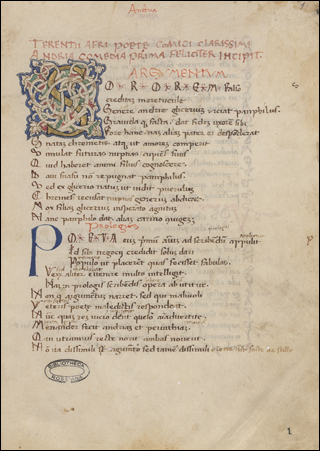 Andria
TERENTII AFRI POETE COMICI CLARISSIMI
ANDRIA COMEDIA PRIMA FELICITER INCIPIT.
ARGUMENTUM
SOROREM falso
creditam meretricule
Genere andrie glicerium viciat pamphilus.
Gravida q; facta. dat fidem uxore sibi
Fore hanc. nam aliam pater ei desponderat
Gnatam chremetis. atq; ut amorem comperit
Simulat futuras nuptias cupiens suus
Quid haberet animi filius cognoscere.
Davi suasu non repugnat pamphilus.
Sed ex glicerio natum ut vidit puerulum
Chremes recusat nuptias generum abdicat.
Mox filiam glicerium insperato agnitam
Hanc pamphilo dat. aliam carino
Prologus
POETA cum primum animum ad scribendum appulit
Id sibi negocii credidit solum dari
Populo ut placerent quas fecisset fabulas.
Verum aliter evenire multo intelligit.
Nam in prologis scribendis opera abutitur.
Non q argumentum narret. sed qui malivoli
Veteris poete maledictis respondeat.
Nunc quam rem vicio dent queso
Menander fecit andriam et perinthiam.
Qui utramvis recte norit ambas noverit.
Non ita dissimili st argumento sed tamen dissimili
BIBLIOTHECA
1